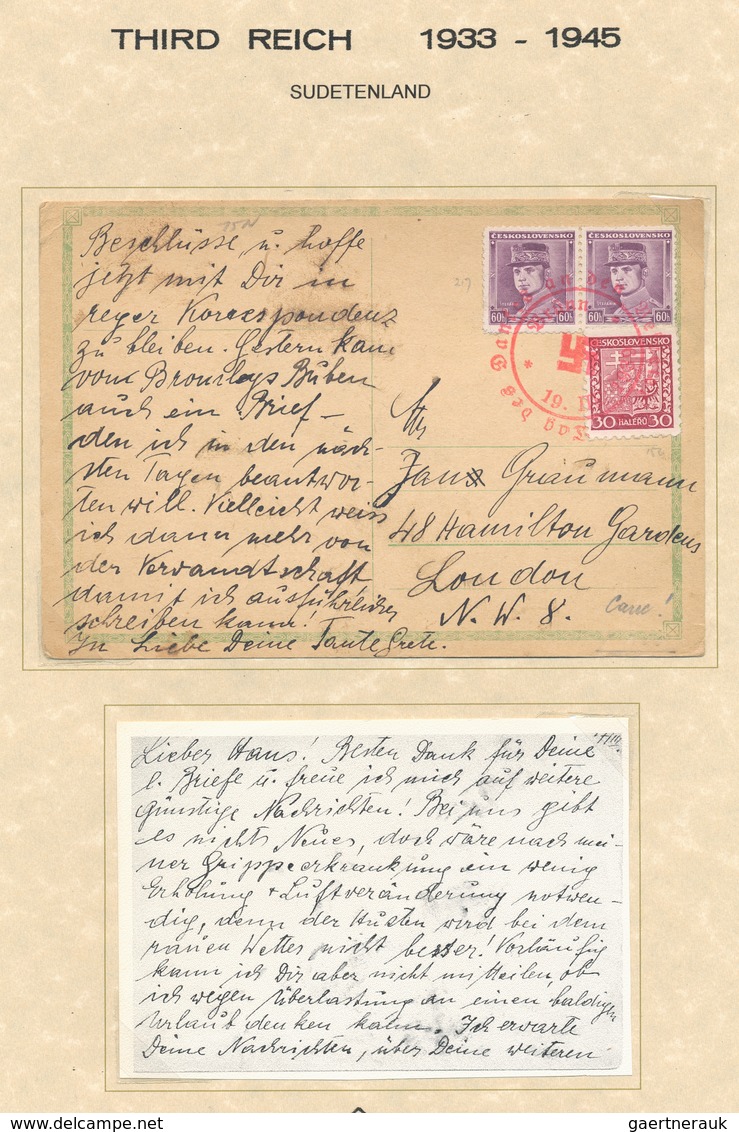 THIRD REICH 1933 - 1945
SUDETENLAND
Beschlüsse u. hoffe
jetzt mit Dir in
reger Korrespondenz
zu bleiben. Gestern kam
vom Bromleys Buben
auch ein Brief –
den ich in den näch-
sten Tagen beantwor-
ten will. Vielleicht weiss
ich dann mehr von
der Verwandtschaft
damit ich ausführlicher
schreiben kann!
In Liebe Deine Tante Grete.
ČESKOSLOVENSKO
60h 60h
ČESKOSLOVENSKO
60h 60h
ČESKOSLOVENSKO
30 HALÉŘŮ 30
Tag des Dankes an den
19.
217
Graumann
48 Hamilton Gardens
London
N. W. 8.
Lieber Hans! Besten Dank für Deine
l. Briefe u. freue ich mich auf weitere
günstige Nachrichten! Bei uns gibt
es nichts Neues, doch wäre nach mei-
ner Grippeerkrankung ein wenig
Erholung + Luftveränderung notwen-
dig, denn der Husten wird bei dem
rauen Wetter nicht besser! Vorläufig
kann ich Dir aber nicht mitteilen, ob
ich wegen Überlastung an einen baldigen
Urlaub denken kann. Ich erwarte
Deine Nachrichten, über Deine weiteren
www.delcampe.net
gaertnerauk